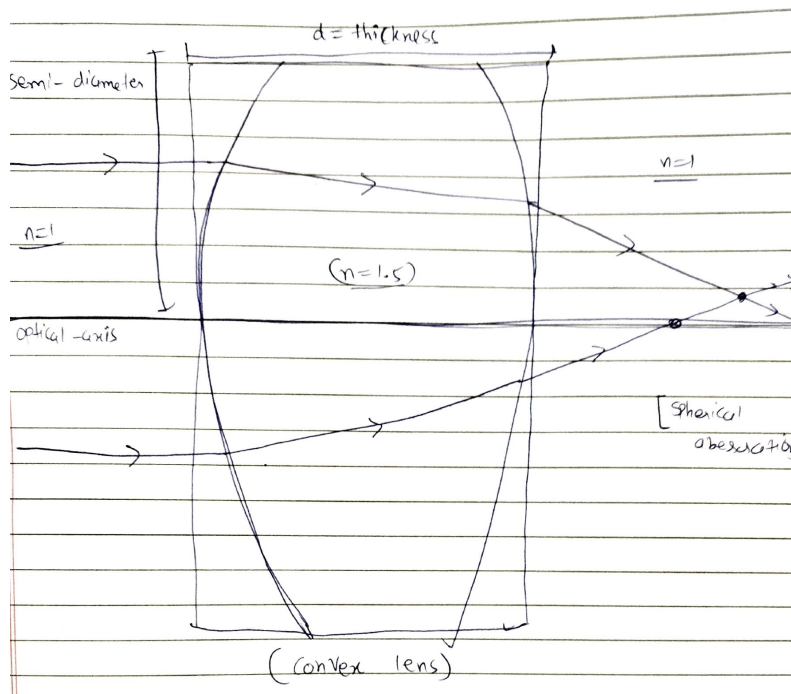 d = thickness
semi-diameter
n=1
n=1
(n=1.5)
optical-axis
[spherical
aberration
(convex lens)